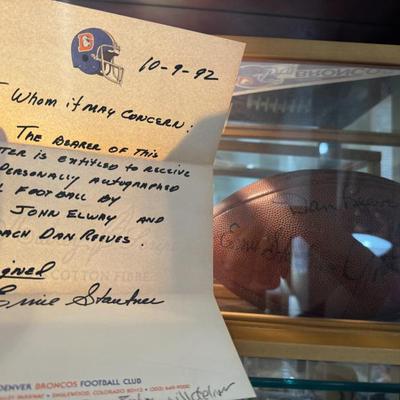 10-9-92
Whom it may Concern:
The Bearer of this
ter is entitled to receive
Personally autographed
Football by
John Elway and
ach Dan Reeves.
igned
Ernie Stautner
COTTON FIBRE
DENVER BRONCOS FOOTBALL CLUB
ENGLEWOOD, COLORADO 80112 • (303) 649-9000
BRONCOS
Dan Reeves